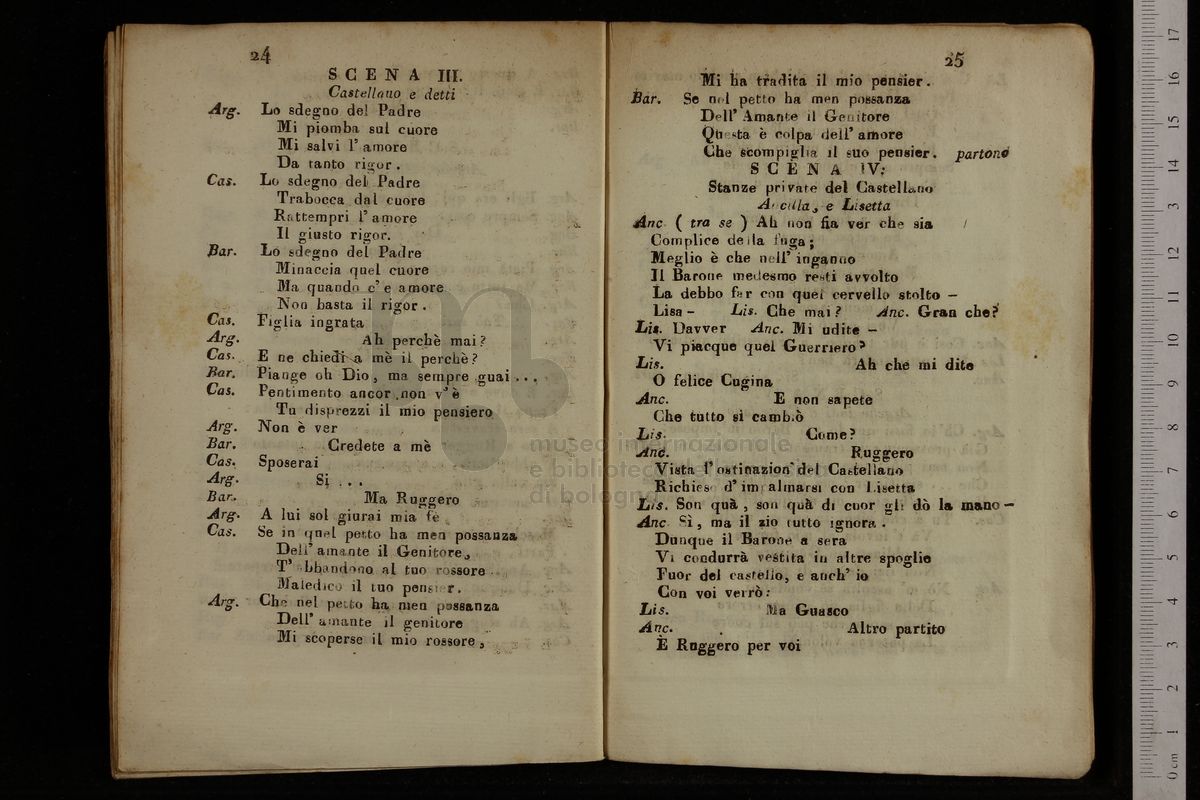 24
SCENA III.
Castellano e detti
Arg. Lo sdegno del Padre
Mi piomba sul cuore
Mi salvi l'amore
Da tanto rigor.
Cas. Lo sdegno del Padre
Trabocca dal cuore
Rattempri l'amore
Il giusto rigor.
Bar. Lo sdegno del Padre
Minaccia quel cuore
Ma quando c'e amore
Non basta il rigor.
Cas. Figlia ingrata
Arg. Ah perchè mai?
Cas. E ne chiedi a mè il perchè?
Bar. Piange oh Dio, ma sempre guai...
Cas. Pentimento ancor non v'è
Tu disprezzi il mio pensiero
Arg. Non è ver
Bar. Credete a mè
Cas. Sposerai
Arg. Si...
Bar. Ma Ruggero
Arg. A lui sol giurai mia fè
Cas. Se in quel petto ha men possanza
Dell'amante il Genitore,
T'abbandono al tuo rossore
Maledico il tuo pensier.
Arg. Che nel petto ha men possanza
Dell'amante il genitore
Mi scoperse il mio rossore,
25
Mi ha tradita il mio pensier.
Bar. Se nel petto ha men possanza
Dell'Amante il Genitore
Questa è colpa dell'amore
Che scompiglia il suo pensier. partono
SCENA IV:
Stanze private del Castellano
Ancilla, e Lisetta
Anc. (tra se) Ah non fia ver che sia
Complice della fuga;
Meglio è che nell'inganno
Il Barone medesmo resti avvolto
La debbo far con quel cervello stolto —
Lisa - Lis. Che mai? Anc. Gran che?
Lis. Davver Anc. Mi udite —
Vi piacque quel Guerriero?
Lis. Ah che mi dite
O felice Cugina
Anc. E non sapete
Che tutto si cambiò
Lis. Come?
Anc. Ruggero
Vista l'ostinazion del Castellano
Richiese d'impalmarsi con Lisetta
Lis. Son quà, son quà di cuor gli dò la mano —
Anc. Sì, ma il zio tutto ignora.
Dunque il Barone a sera
Vi condurrà vestita in altre spoglie
Fuor del castello, e anch'io
Con voi verrò:
Lis. Ma Guasco
Anc. Altro partito
È Ruggero per voi
museo internazionale
e biblioteca della
di bologna
0 cm 1 2 3 4 5 6 7 8 9 10 11 12 13 14 15 16 17